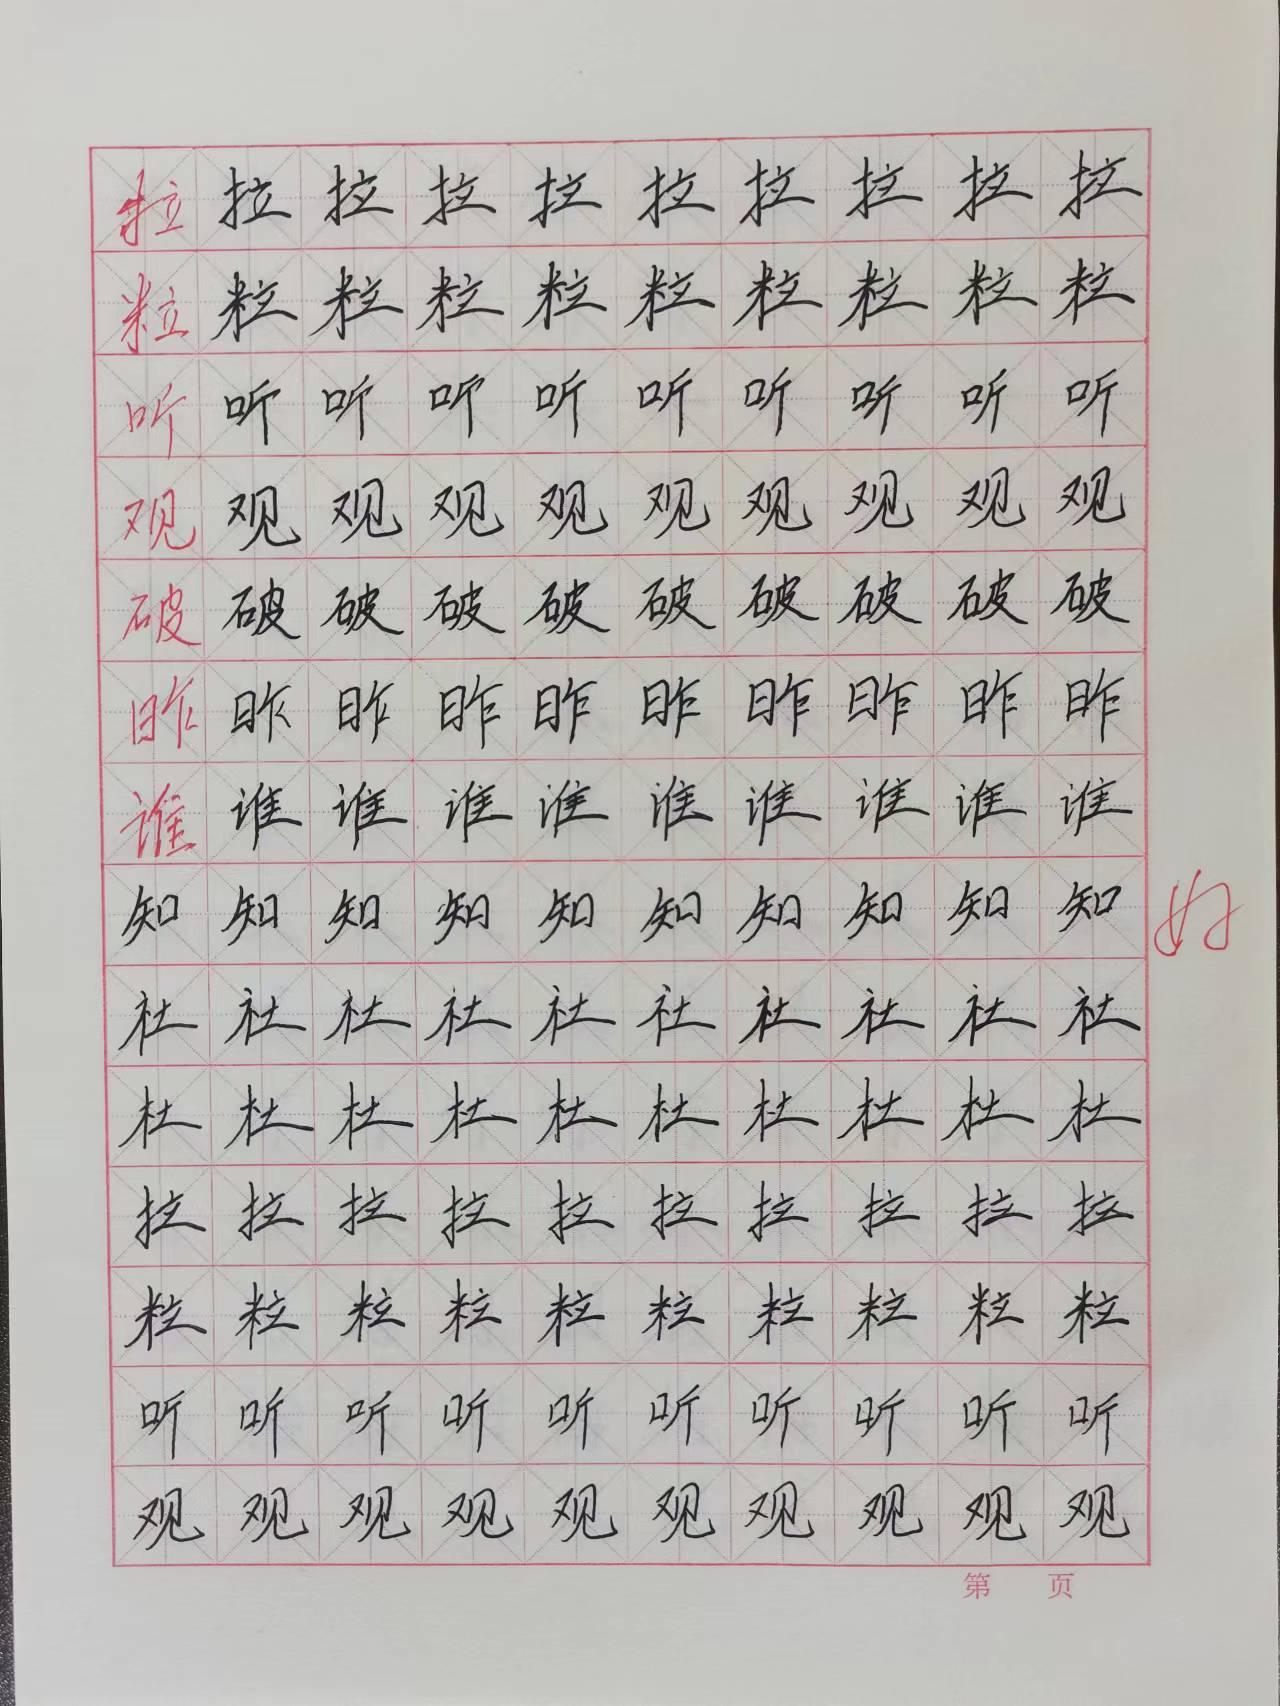 拉拉拉拉拉拉拉拉拉拉
粒粒粒粒粒粒粒粒粒粒
听听听听听听听听听听
观观观观观观观观观观
破破破破破破破破破破
昨昨昨昨昨昨昨昨昨昨
谁谁谁谁谁谁谁谁谁谁
知知知知知知知知知知 好
社社社社社社社社社社
杜杜杜杜杜杜杜杜杜杜
拉拉拉拉拉拉拉拉拉拉
粒粒粒粒粒粒粒粒粒粒
听听听听听听听听听听
观观观观观观观观观观
第 页